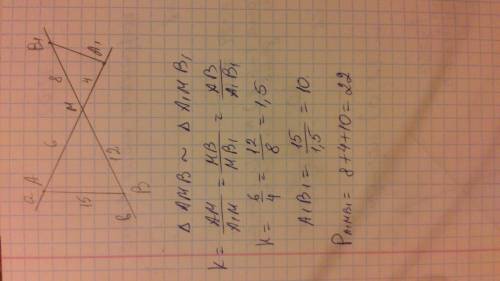 a A 6 M 4 A₁
15 12 8 B₁
b B
Δ AMB ~ Δ A₁MB₁
K = AM/A₁M = MB/MB₁ = AB/A₁B₁
K = 6/4 = 12/8 = 1,5
A₁B₁ = 15/1,5 = 10.
P A₁MB₁ = 8+4+10 = 22